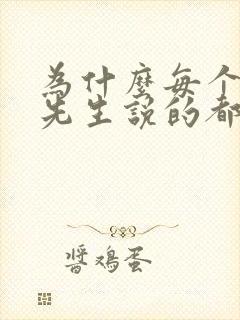 为什麼每个
先生説的都
醬鸡蛋